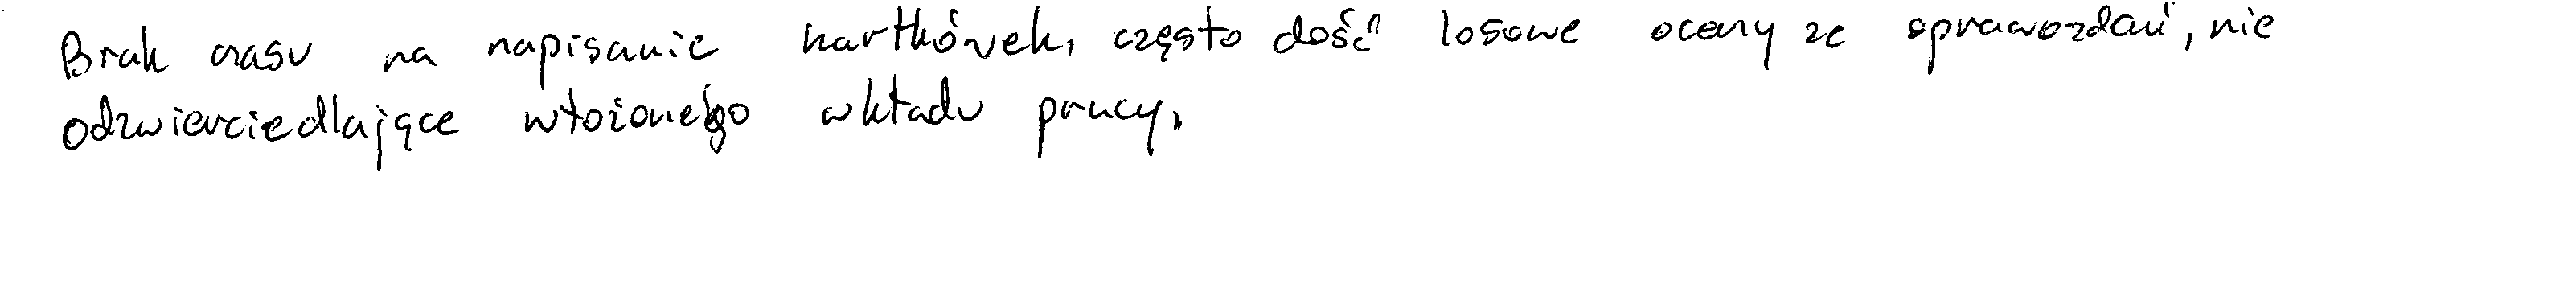 Brak czasu na napisanie kartkówek, często dość losowe oceny ze sprawozdań, nie
odzwierciedlające włożonego wkładu pracy,